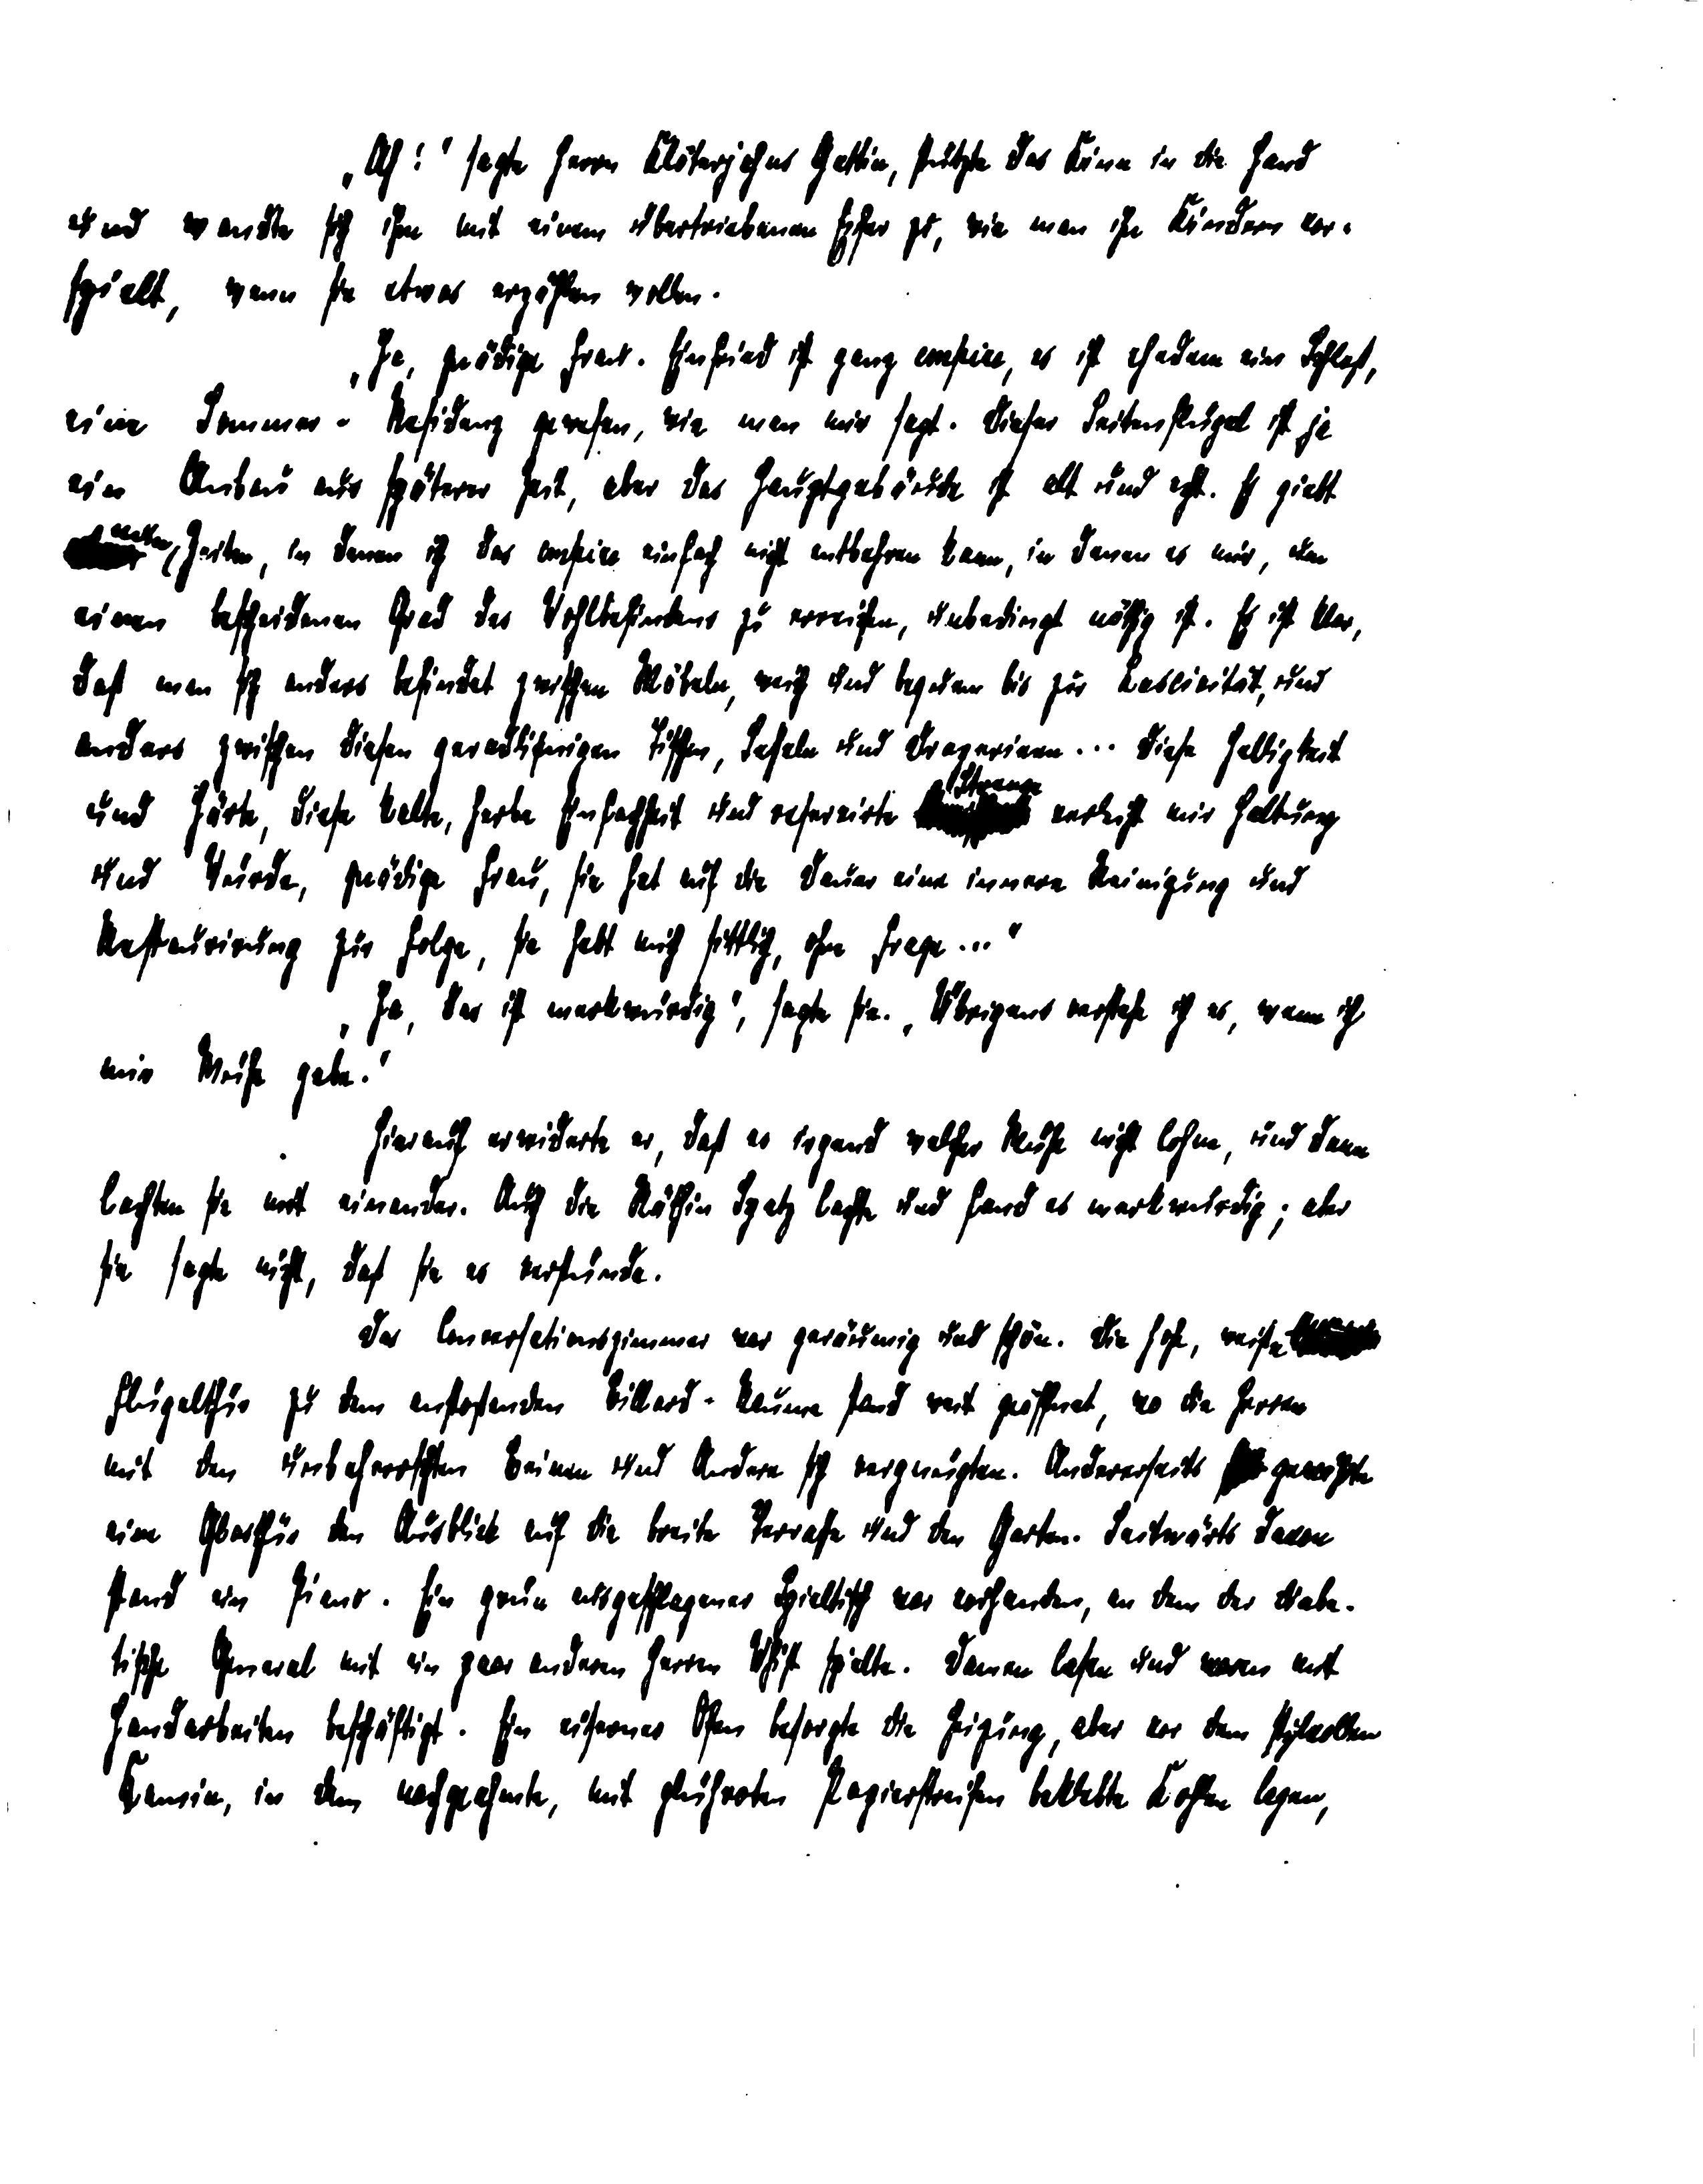 „Ach!“ sagte Herrn Klöterjahns Gattin, stützte das Kinn in die Hand
und wandte sich ihm mit einem übertriebenen Eifer zu, wie man ihn Kindern vor-
spielt, wenn sie etwas erzählen wollen.
„Ja, gnädige Frau. Einfried ist ganz empire, es ist ehedem ein Schloß,
eine Sommer-Residenz gewesen, wie man mir sagt. Dieser Seitenflügel ist ja
ein Anbau aus späterer Zeit, aber das Hauptgebäude ist alt und echt. Es giebt
Zeiten, in denen ich das empire einfach nicht entbehren kann, in denen es mir, um
einen bescheidenen Grad des Wohlbefindens zu erreichen, unbedingt nöthig ist. Es ist klar,
daß man sich anders befindet zwischen Möbeln, weich und bequem bis zur Lascivität, und
anders zwischen diesen geradlinigen Tischen, Sesseln und Draperieen... Diese Helligkeit
und Härte, diese kalte, herbe Einfachheit und reservirte Strenge verleiht mir Haltung
und Würde, gnädige Frau, sie hat auf die Dauer eine innere Reinigung und
Restaurirung zur Folge, sie hebt mich sittlich, ohne Frage..."
„Ja, das ist merkwürdig“, sagte sie. „Übrigens verstehe ich es, wenn ich
mir Mühe gebe.“
Hierauf erwiderte er, daß es irgend welcher Mühe nicht lohne, und dann
lachten sie mit einander. Auch die Räthin Spatz lachte und fand es merkwürdig; aber
sie sagte nicht, daß sie es verstünde.
Das Conversationszimmer war geräumig und schön. Die hohe, weiße
Flügelthür zu dem anstoßenden Billard-Raume stand weit geöffnet, wo die Herren
mit den unbeherrschten Beinen und Andere sich vergnügten. Andererseits gewährte
eine Glasthür den Ausblick auf die breite Terrasse und den Garten. Seitwärts davon
stand ein Piano. Ein grün ausgeschlagener Spieltisch war vorhanden, an dem der diabe-
tische General mit ein paar anderen Herren Whist spielte. Damen lasen und waren mit
Handarbeiten beschäftigt. Ein eiserner Ofen besorgte die Heizung, aber vor dem stylvollen
Kamin, in dem nachgeahmte, mit glühroten Papierstreifen beklebte Kohlen lagen,